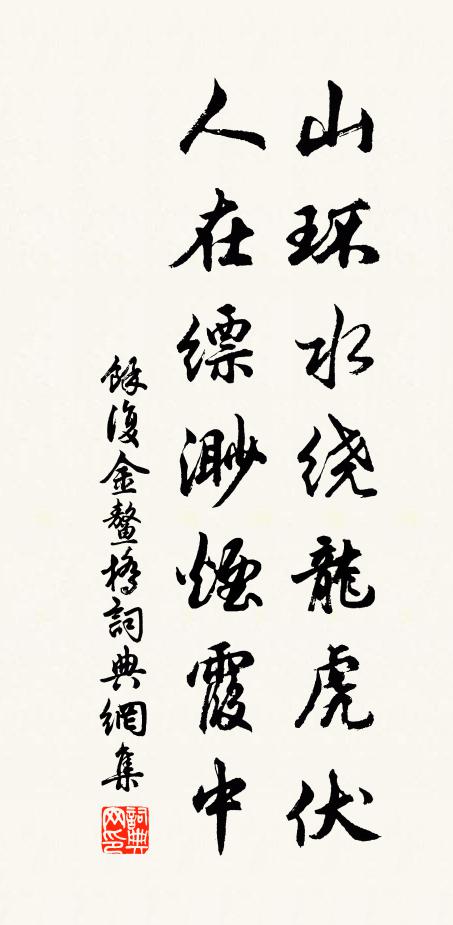 山环水绕龍虎伏
人在缥渺煙霞中
餘復金鳌橋詞典網集
詞典網印